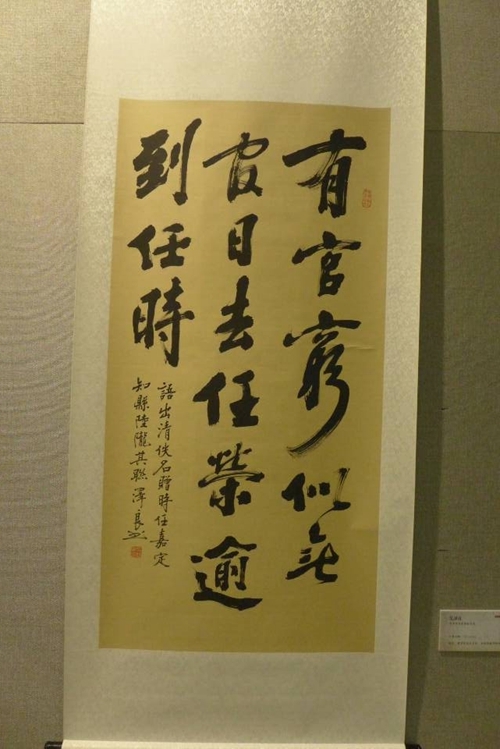 有官窮似無
官日去任榮逾
到任時
語出清佚名贈時任嘉定
知縣陸隴其聯澤良书